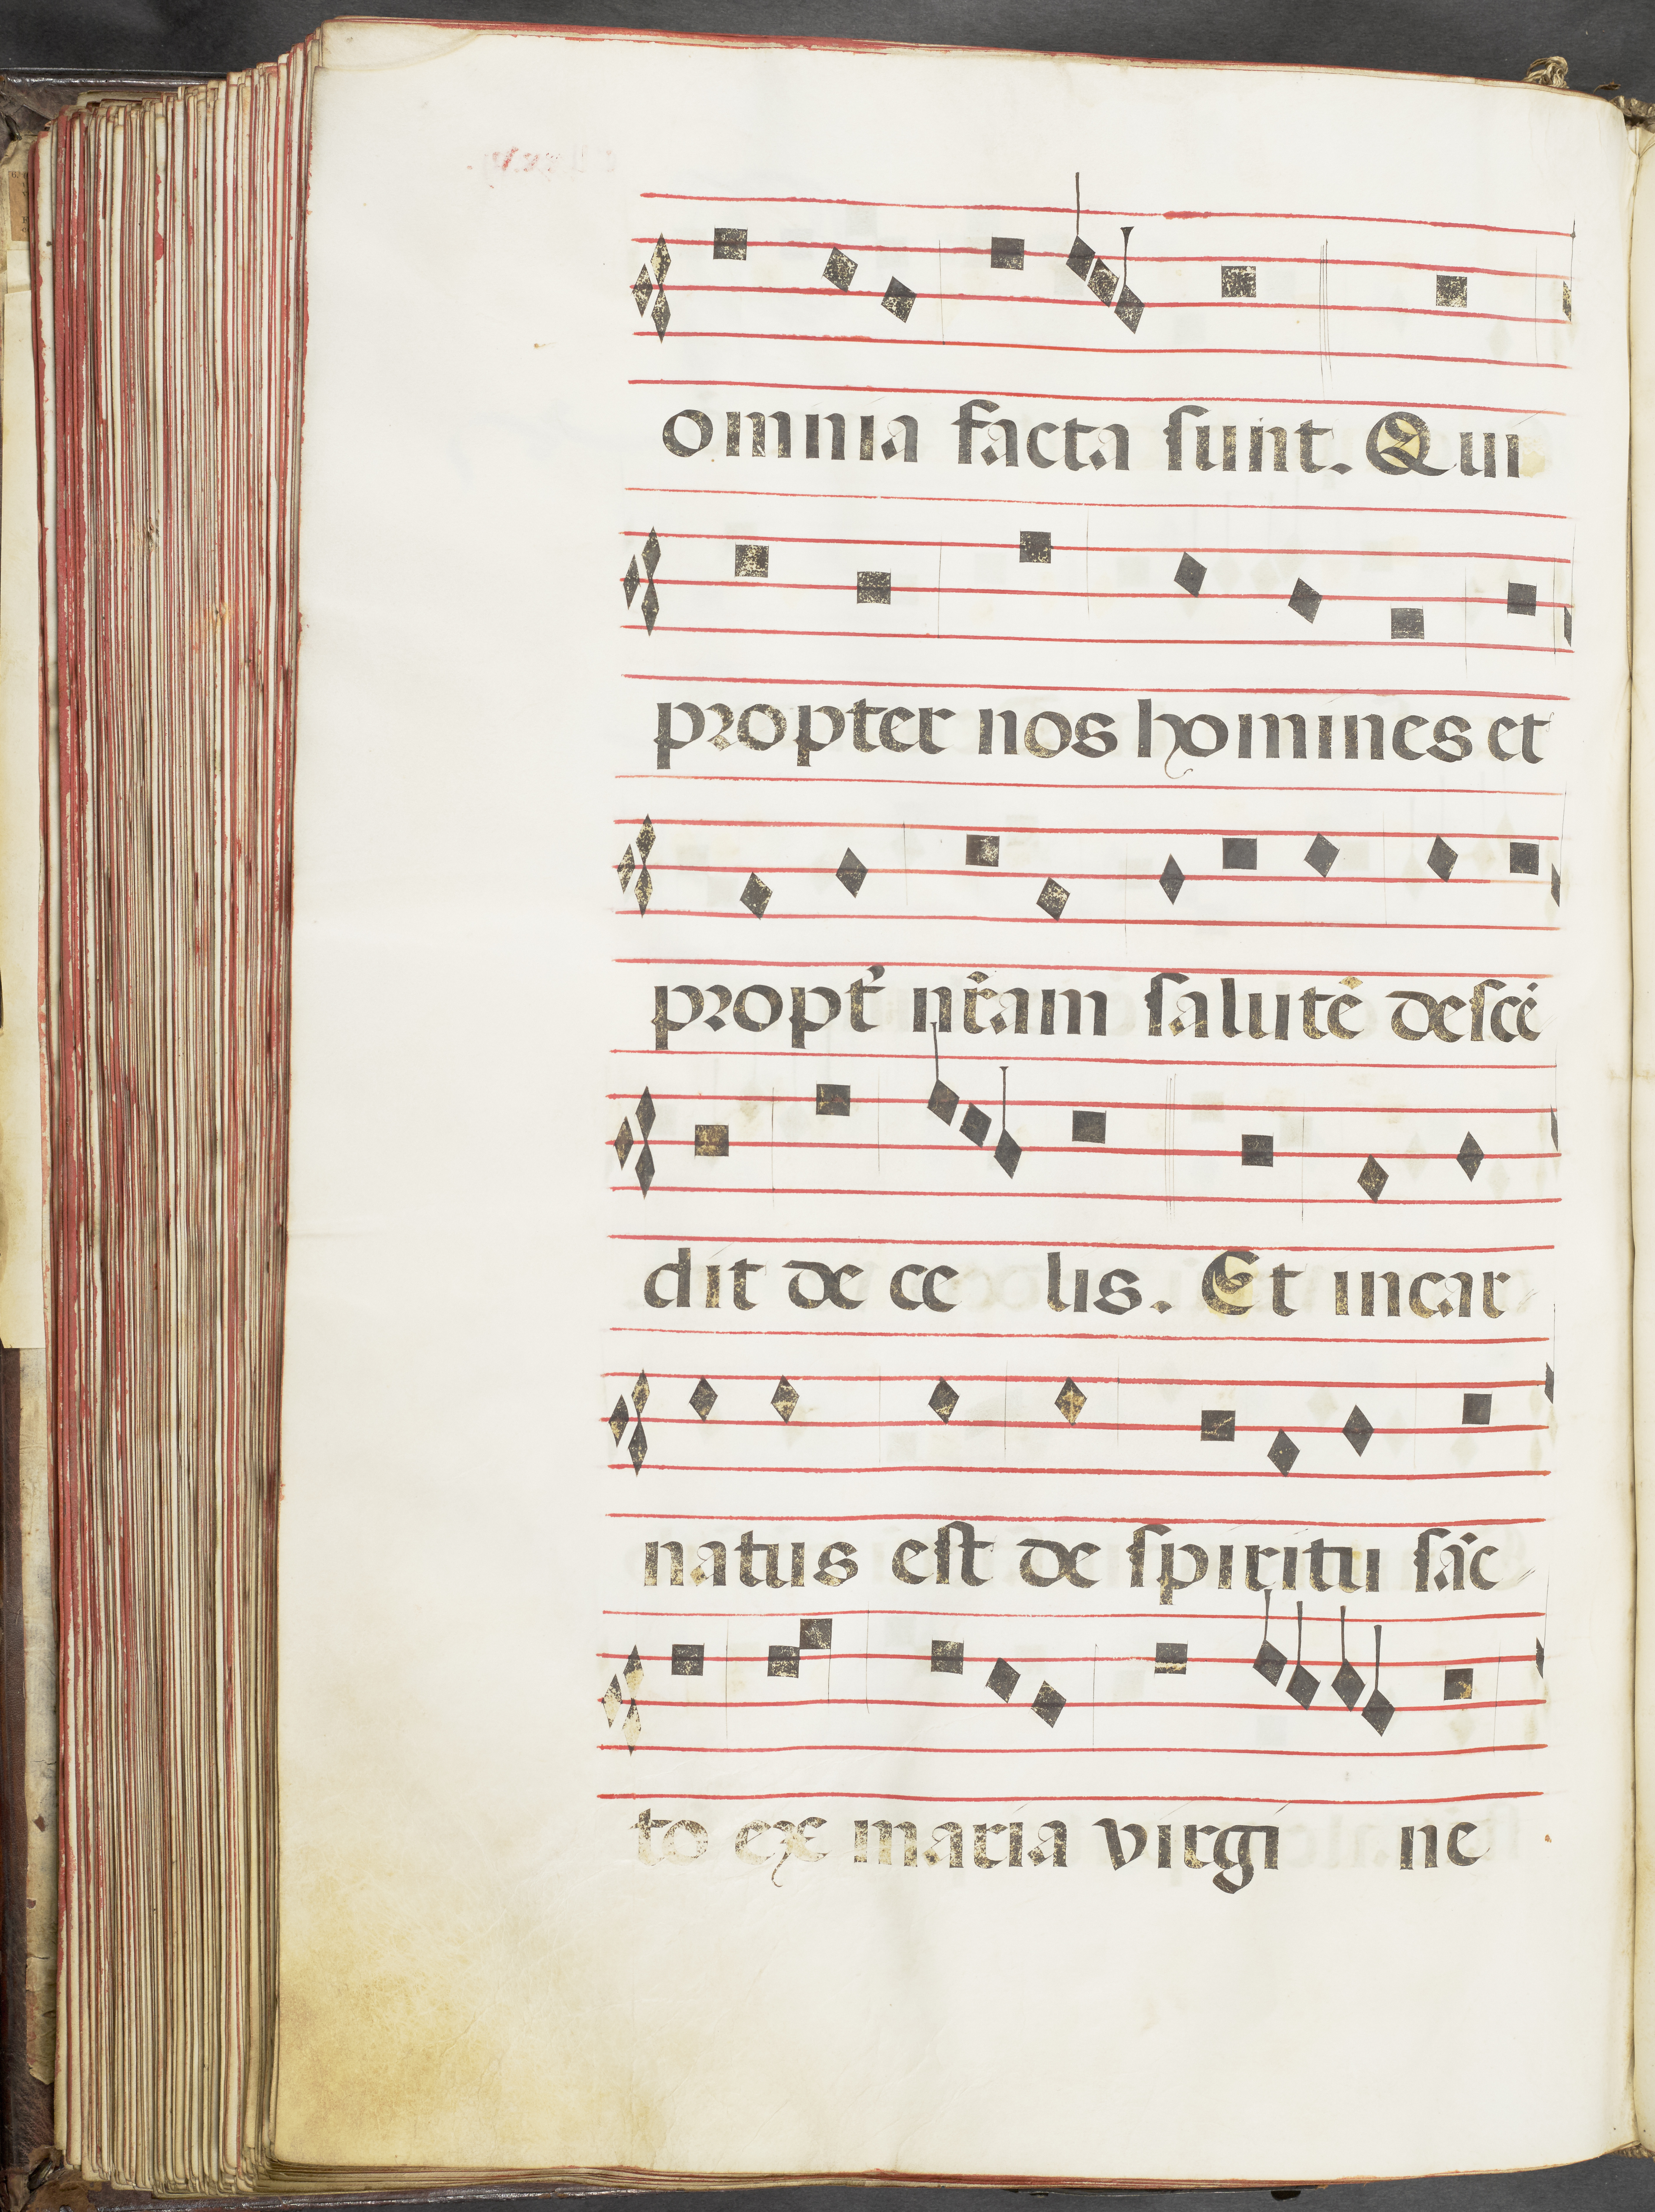 omnia facta sunt. Qui
propter nos homines et
propt̉ nr̃am salutē descē
dit de ce lis. Et incar
natus est de spiritu sãc
to ex maria virgi ne